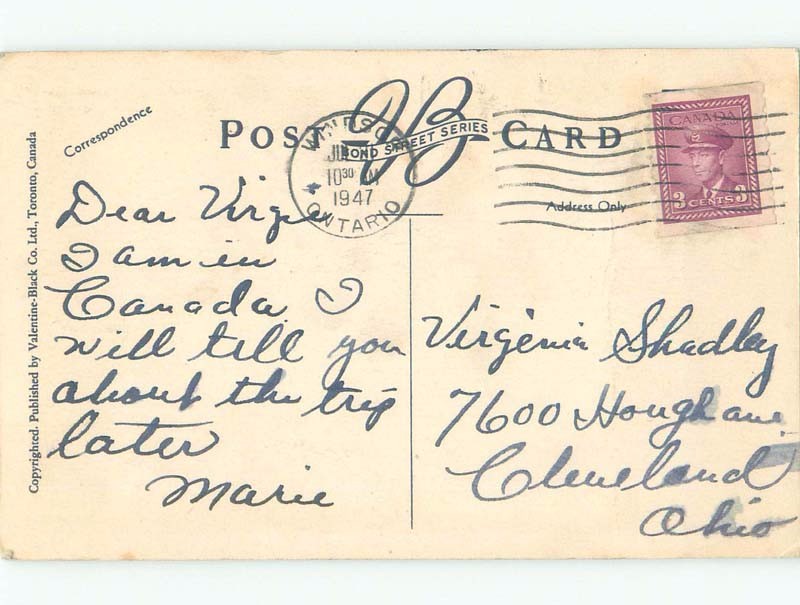 Correspondence
POST CARD
JB
BOND STREET SERIES
WINDSOR
10 30
1947
ONTARIO
CANADA
3 CENTS 3
Address Only
Copyrighted. Published by Valentine-Black Co. Ltd., Toronto, Canada
Dear Virge
I am in
Canada. I
will tell you
about the trip
later
Marie
Virginia Shadley
7600 Hough ave
Cleveland
Ohio